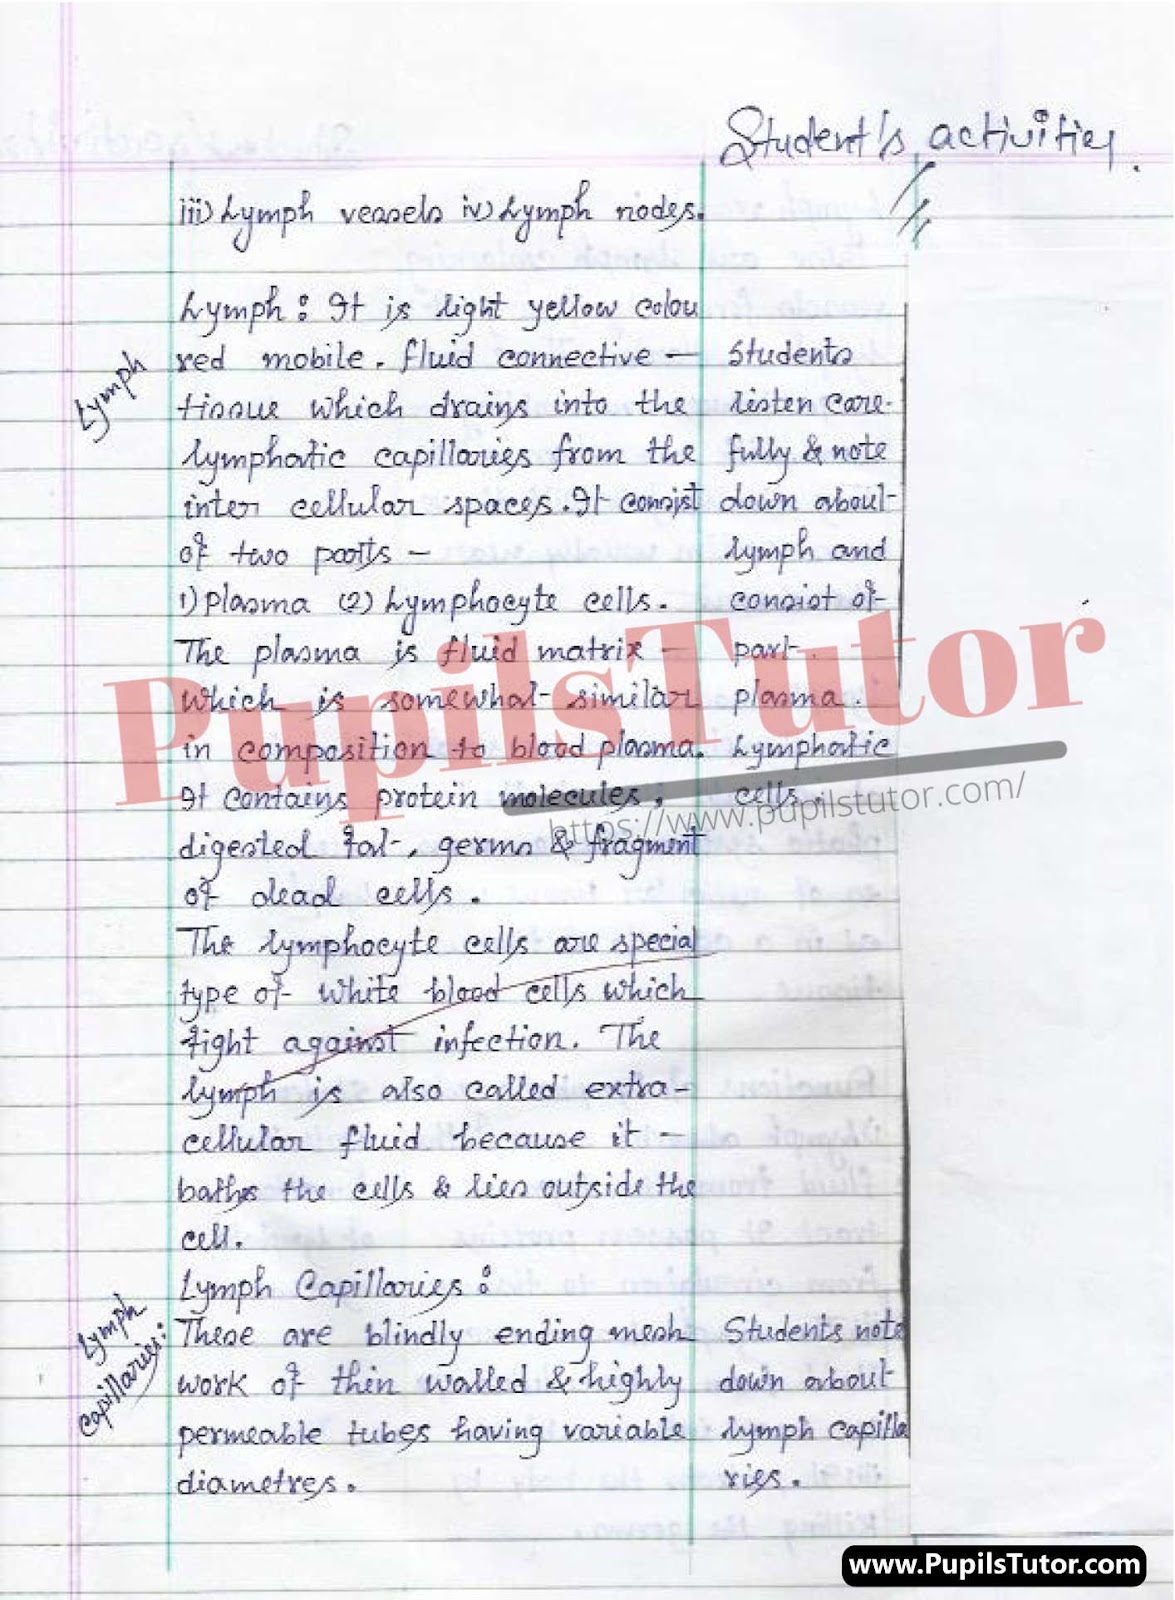 Student's activities.
iii) Lymph vessels iv) Lymph nodes.
Lymph
Lymph : It is light yellow colou
red mobile. fluid connective –
tissue which drains into the
lymphatic capillaries from the
inter cellular spaces. It consist
of two parts –
1) Plasma (2) Lymphocyte cells.
The plasma is fluid matrix –
which is somewhat similar
in composition to blood plasma.
It contains protein molecules,
digested fat, germs & fragment
of dead cells.
The lymphocyte cells are special
type of white blood cells which
fight against infection. The
lymph is also called extra-
cellular fluid because it –
baths the cells & lies outside the
cell.
Students
listen care-
fully & note
down about
lymph and
consist of
part.
plasma.
Lymphatic
cells.
Lymph
capillaries:
Lymph Capillaries :
These are blindly ending mesh
work of thin walled & highly
permeable tubes having variable
diametres.
Students note
down about
lymph capilla
ries.
PupilsTutor
https://www.pupilstutor.com/
www.PupilsTutor.com